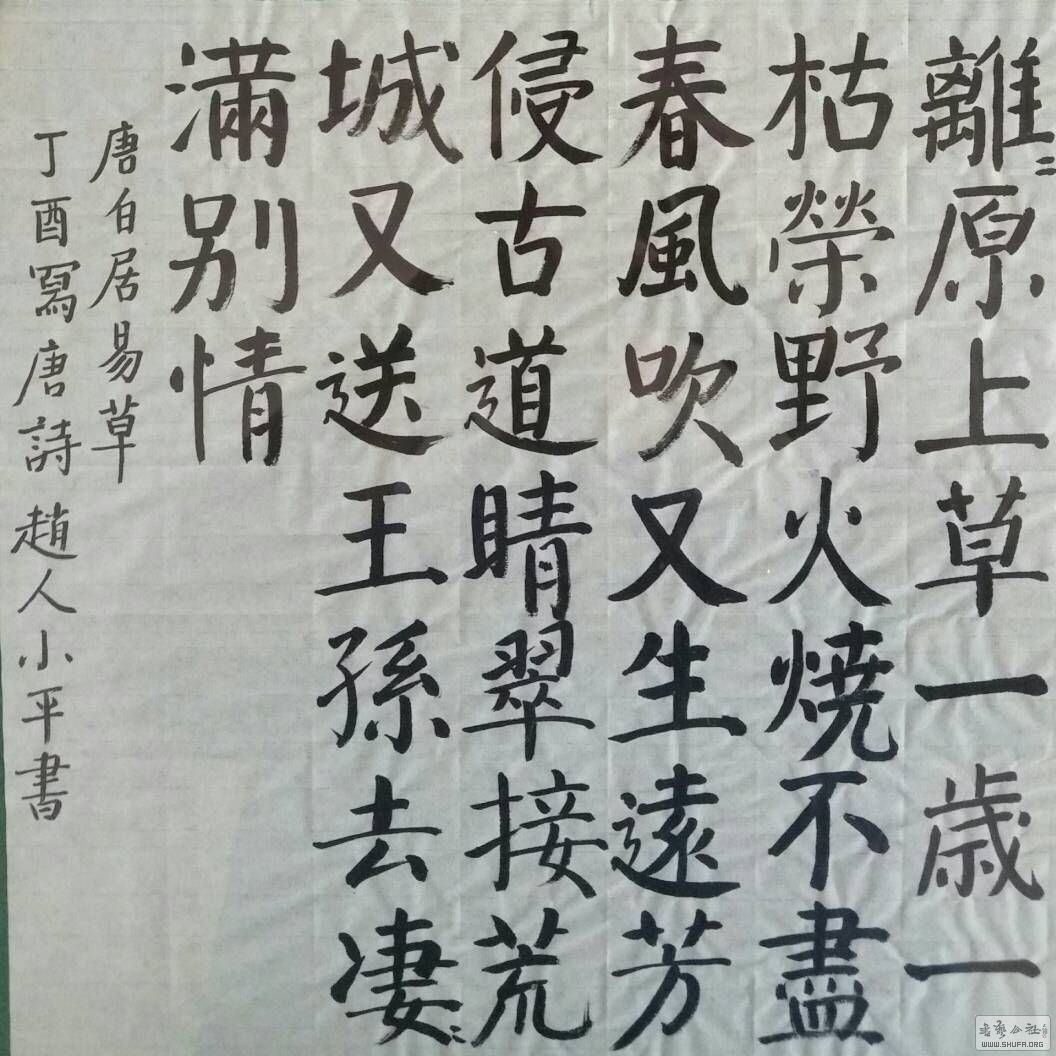 離〻原上草一歳一
枯榮野火燒不盡
春風吹又生遠芳
侵古道晴翠接荒
城又送王孫去凄〻
滿別情
唐白居易草
丁酉寫唐詩趙人小平書
WWW.SHUFA.ORG